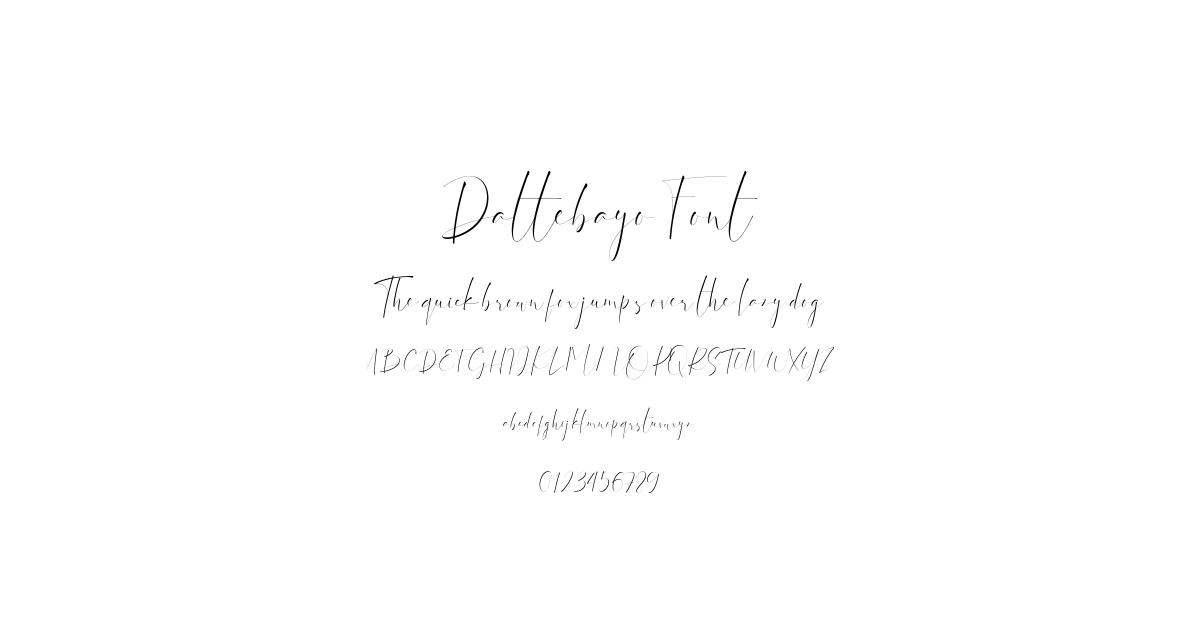 Dattebayo Font
The quick brown fox jumps over the lazy dog
ABCDEFGHIJKLMNOPQRSTUVWXYZ
abcdefghijklmnopqrstuvwxyz
0123456789